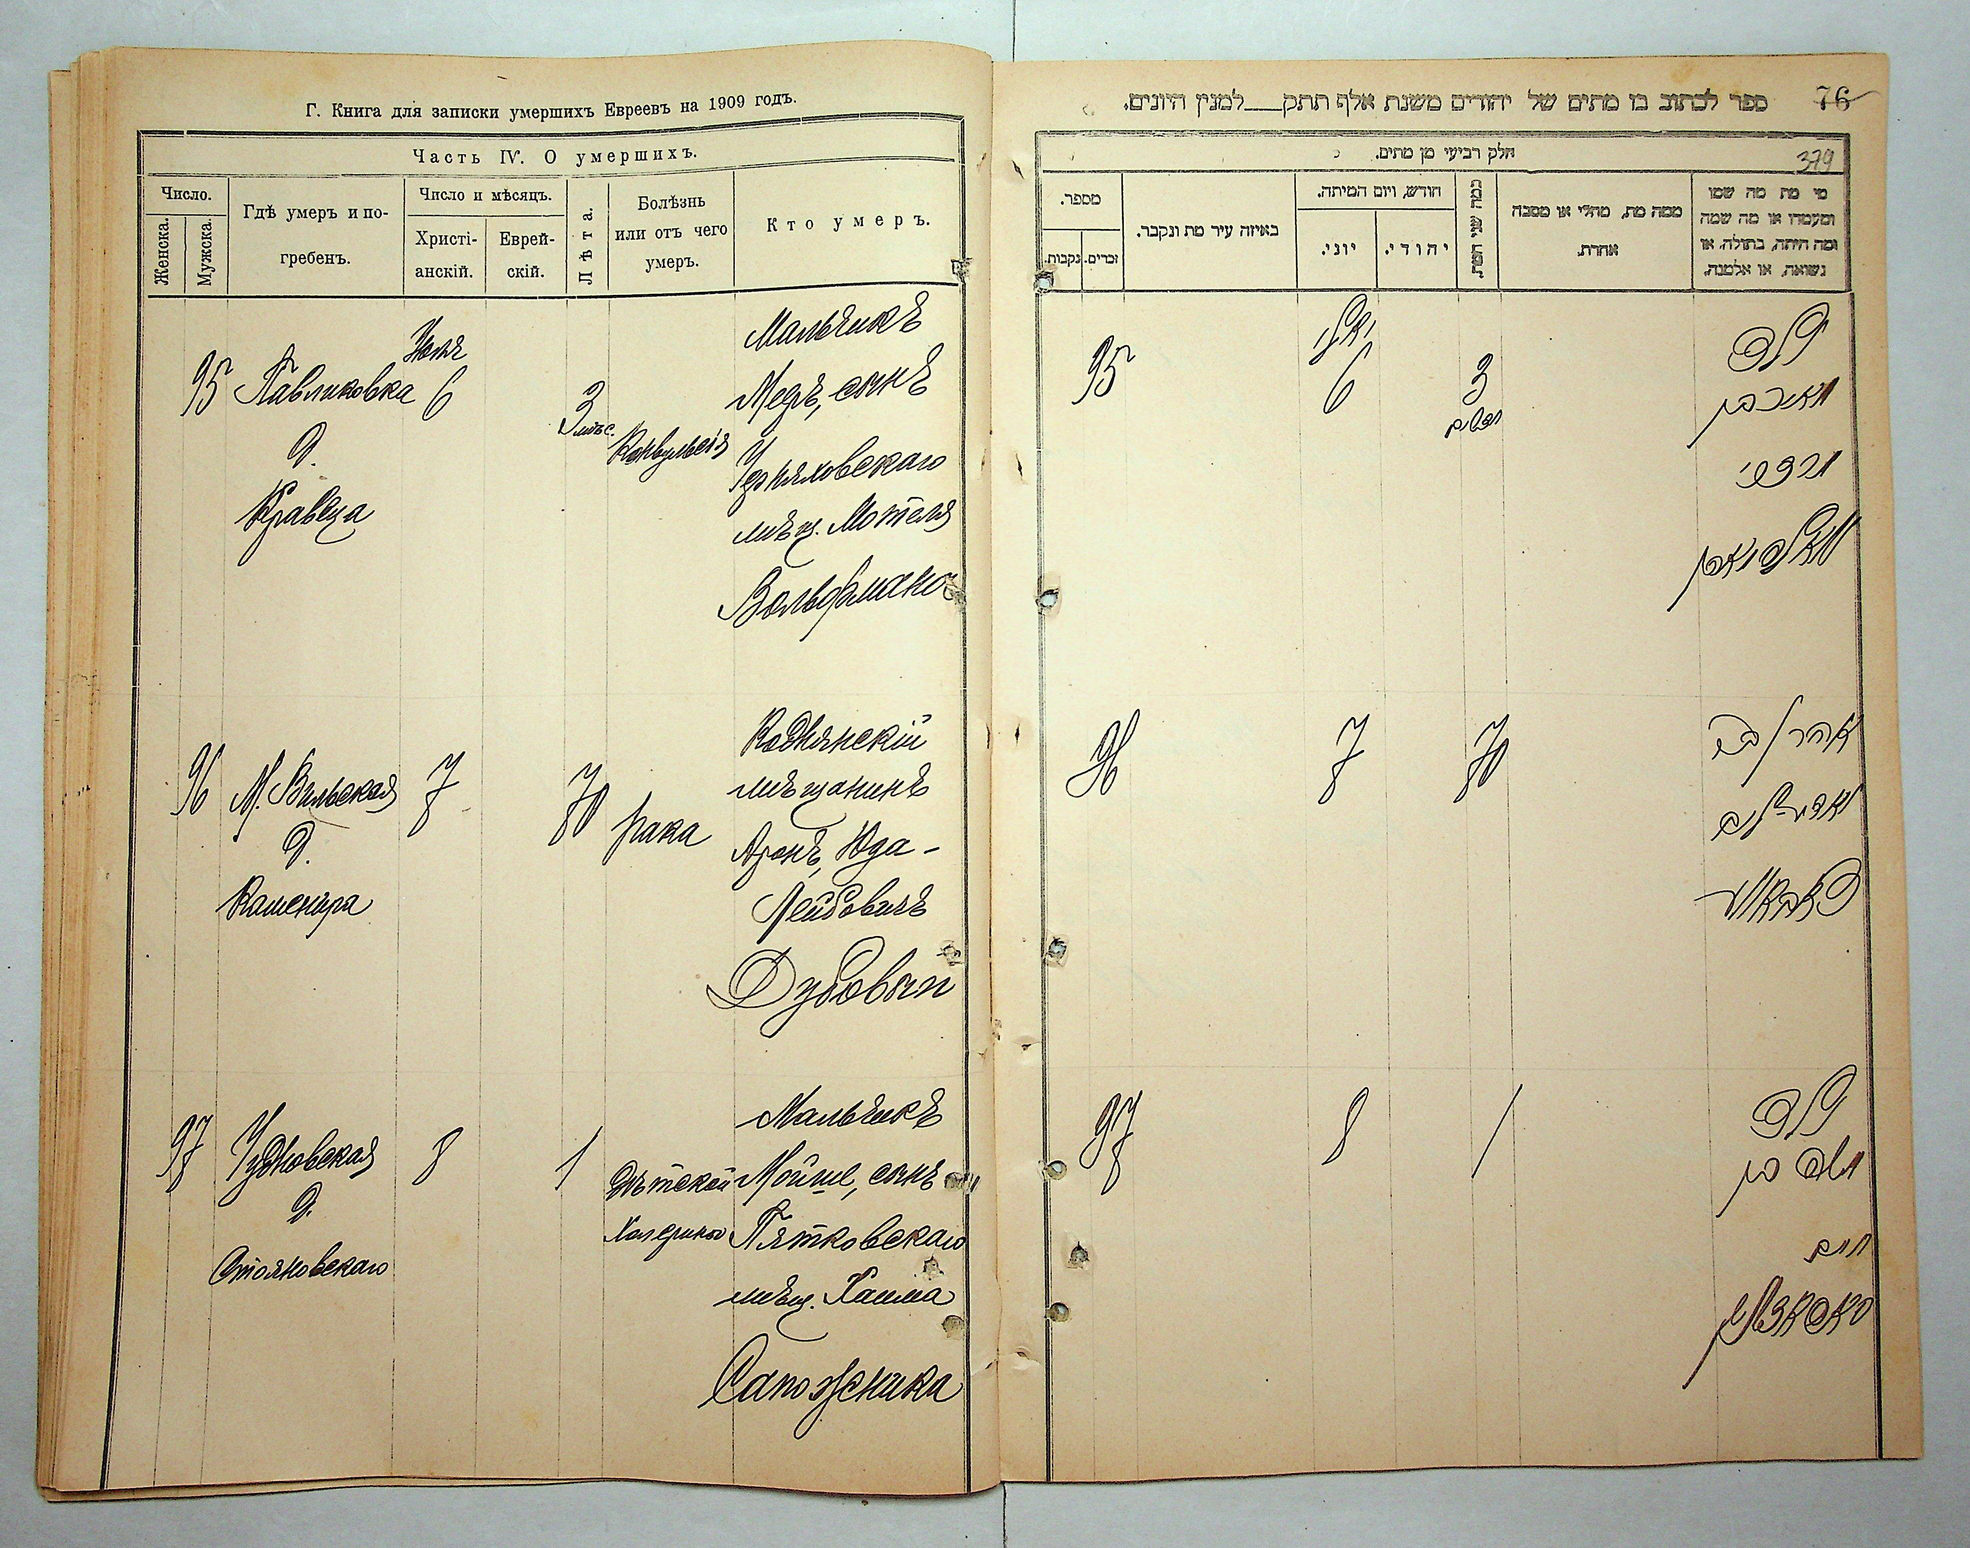 Г. Книга для записки умершихъ Евреевъ на 1909 годъ.
Часть IV. О умершихъ.
Число.
Женска.
Мужска.
Гдѣ умеръ и по-
гребенъ.
Число и мѣсяцъ.
Христі-
анскій.
Еврей-
скій.
Лѣта.
Болѣзнь
или отъ чего
умеръ.
Кто умеръ.
95
Павликовка
д.
Кравеца
6
3
мѣс.
Конвульсія
Мальчикъ
сынъ
Черняховскаго
мѣщ. Мотеля
Вольфмана
96
М. Вильская
д.
Кошенира
7
70
рака
Коднянскій
мѣщанинъ
Аронъ, Юда-
Лейбовичъ
Дубовый
97
Чудновская
д.
Стояновскаго
8
1
Дѣтской
Холерины
Мальчикъ
Мойше, сынъ
Пятковскаго
мѣщ. Хаима
Сапожника
ספר לכתוב בו מתים של יהודים משנת אלף תתק___למנין היונים.
76
חלק רביעי מן מתים.
379
מספר.
נקבות.
זכרים.
באיזה עיר מת ונקבר.
חודש, ויום המיתה.
יוני.
יהודי.
כמה שני המת.
ממה מת, מחלי או מסבה
אחרת.
מי מת מה שמו
ומעמדו או מה שמה
ומה היתה, בתולה, או
נשואה, או אלמנה.
95
יולי
6
3
חדשים
ילד
מרדכי
וואלפמאן
96
7
70
אהרן בר
דאבאווי
97
8
1
ילד
משה בן
חיים
סאפאזניק